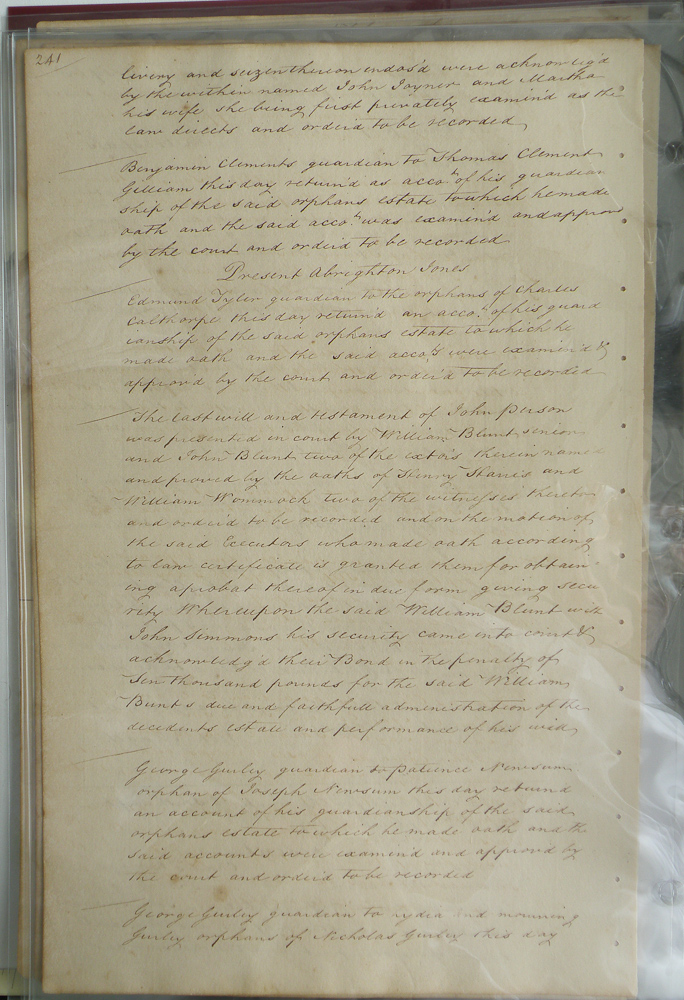 241
livery and seizen thereon endos'd were acknowlegd
by the within named John Joyner and Martha
his wife she being first privately examind as the
law directs and orderd to be recorded
Benjamin Clements guardian to Thomas Clement
Gilliam this day returnd as acco.ᵗ of his guardian
ship of the said orphans estate to which he made
oath and the said acco.ᵗ was examind and approv
by the court and orderd to be recorded
Present Abrighton Jones
Edmund Tyler guardian to the orphans of Charles
Calthorpe this day returnd an acco.ᵗ of his guard
ianship of the said orphans estate to which he
made oath and the said acco.ᵗˢ were examin'd &
approvd by the court and order'd to be recorded
The last will and testament of John Person
was presented in court by William Blunt senior
and John Blunt two of the extors therein named
and proved by the oaths of Henry Harris and
William Wommock two of the witnesses thereto
and orderd to be recorded and on the motion of
the said Executors who made oath according
to law certificate is granted them for obtain
ing a probat thereof in due form giving secu
rity Whereupon the said William Blunt with
John Simmons his security came into court &
acknowledg'd their Bond in the penalty of
Ten thousand pounds for the said William
Bunts due and faithfull administration of the
decedents estate and performance of his
George Gurley guardian to Patience Newsum
orphan of Joseph Newsum this day returnd
an account of his guardianship of the said
orphans estate to which he made oath and the
said accounts were examind and approvd by
the court and orderd to be recorded
George Gurley guardian to Lydia and mourning
Gurley orphans of Nicholas Gurley this day